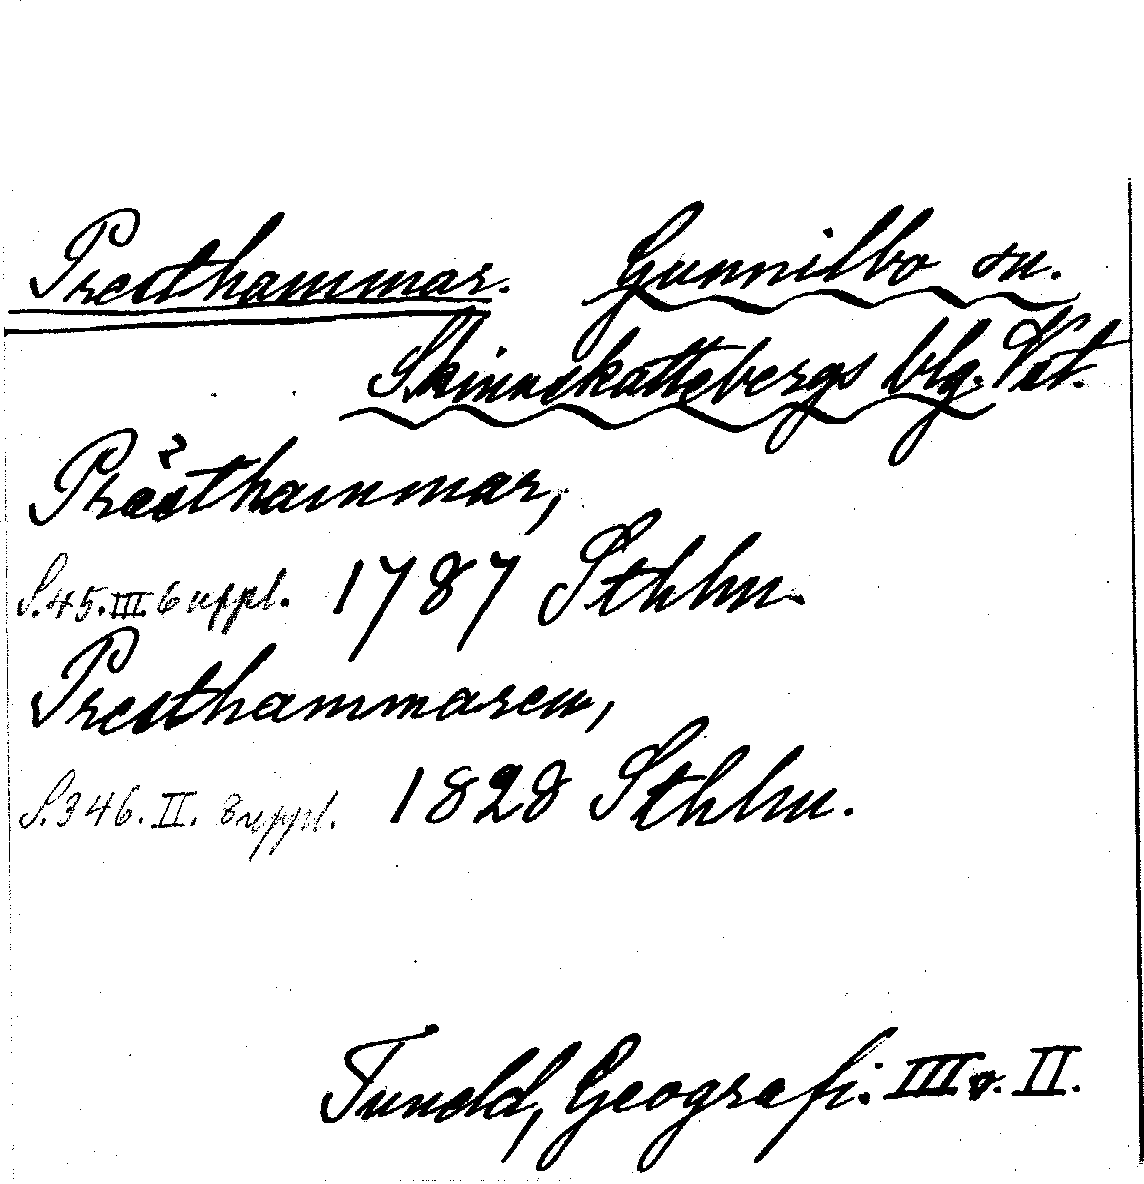 Presthammar. Gunnilbo sn.
Skinnskattebergs blg. Vstm.
Prästhammar,
S.45.III. 6 uppl. 1787 Sthlm.
Presthammaren,
S.346. II. 8 uppl. 1828 Sthlm.
Tuneld, Geografi. III o. II.